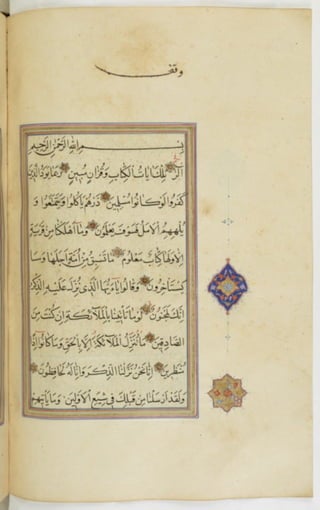 وقف
بسم الله الرحمن الرحيم
الر تلك آيات الكتاب وقرآن مبين ربما يود الذين
كفروا لو كانوا مسلمين ذرهم يأكلوا ويتمتعوا و
يلههم الأمل فسوف يعلمون وما أهلكنا من قرية
إلا ولها كتاب معلوم ما تسبق من أمة أجلها وما
يستأخرون وقالوا يا أيها الذي نزل عليه الذكر
إنك لمجنون لو ما تأتينا بالملائكة إن كنت من
الصادقين ما ننزل الملائكة إلا بالحق وما كانوا إذا
منظرين إنا نحن نزلنا الذكر وإنا له لحافظون
ولقد أرسلنا من قبلك في شيع الأولين وما يأتيهم